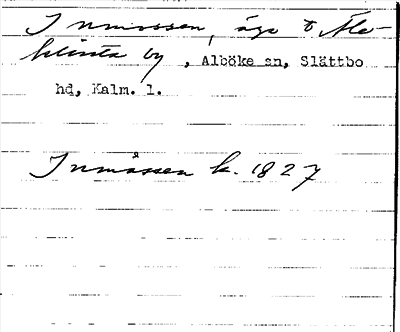 Inmossen, ägo t Åle-
klinta by, Alböke sn, Slättbo
hd, Kalm. l.
Inmåssen k. 1827